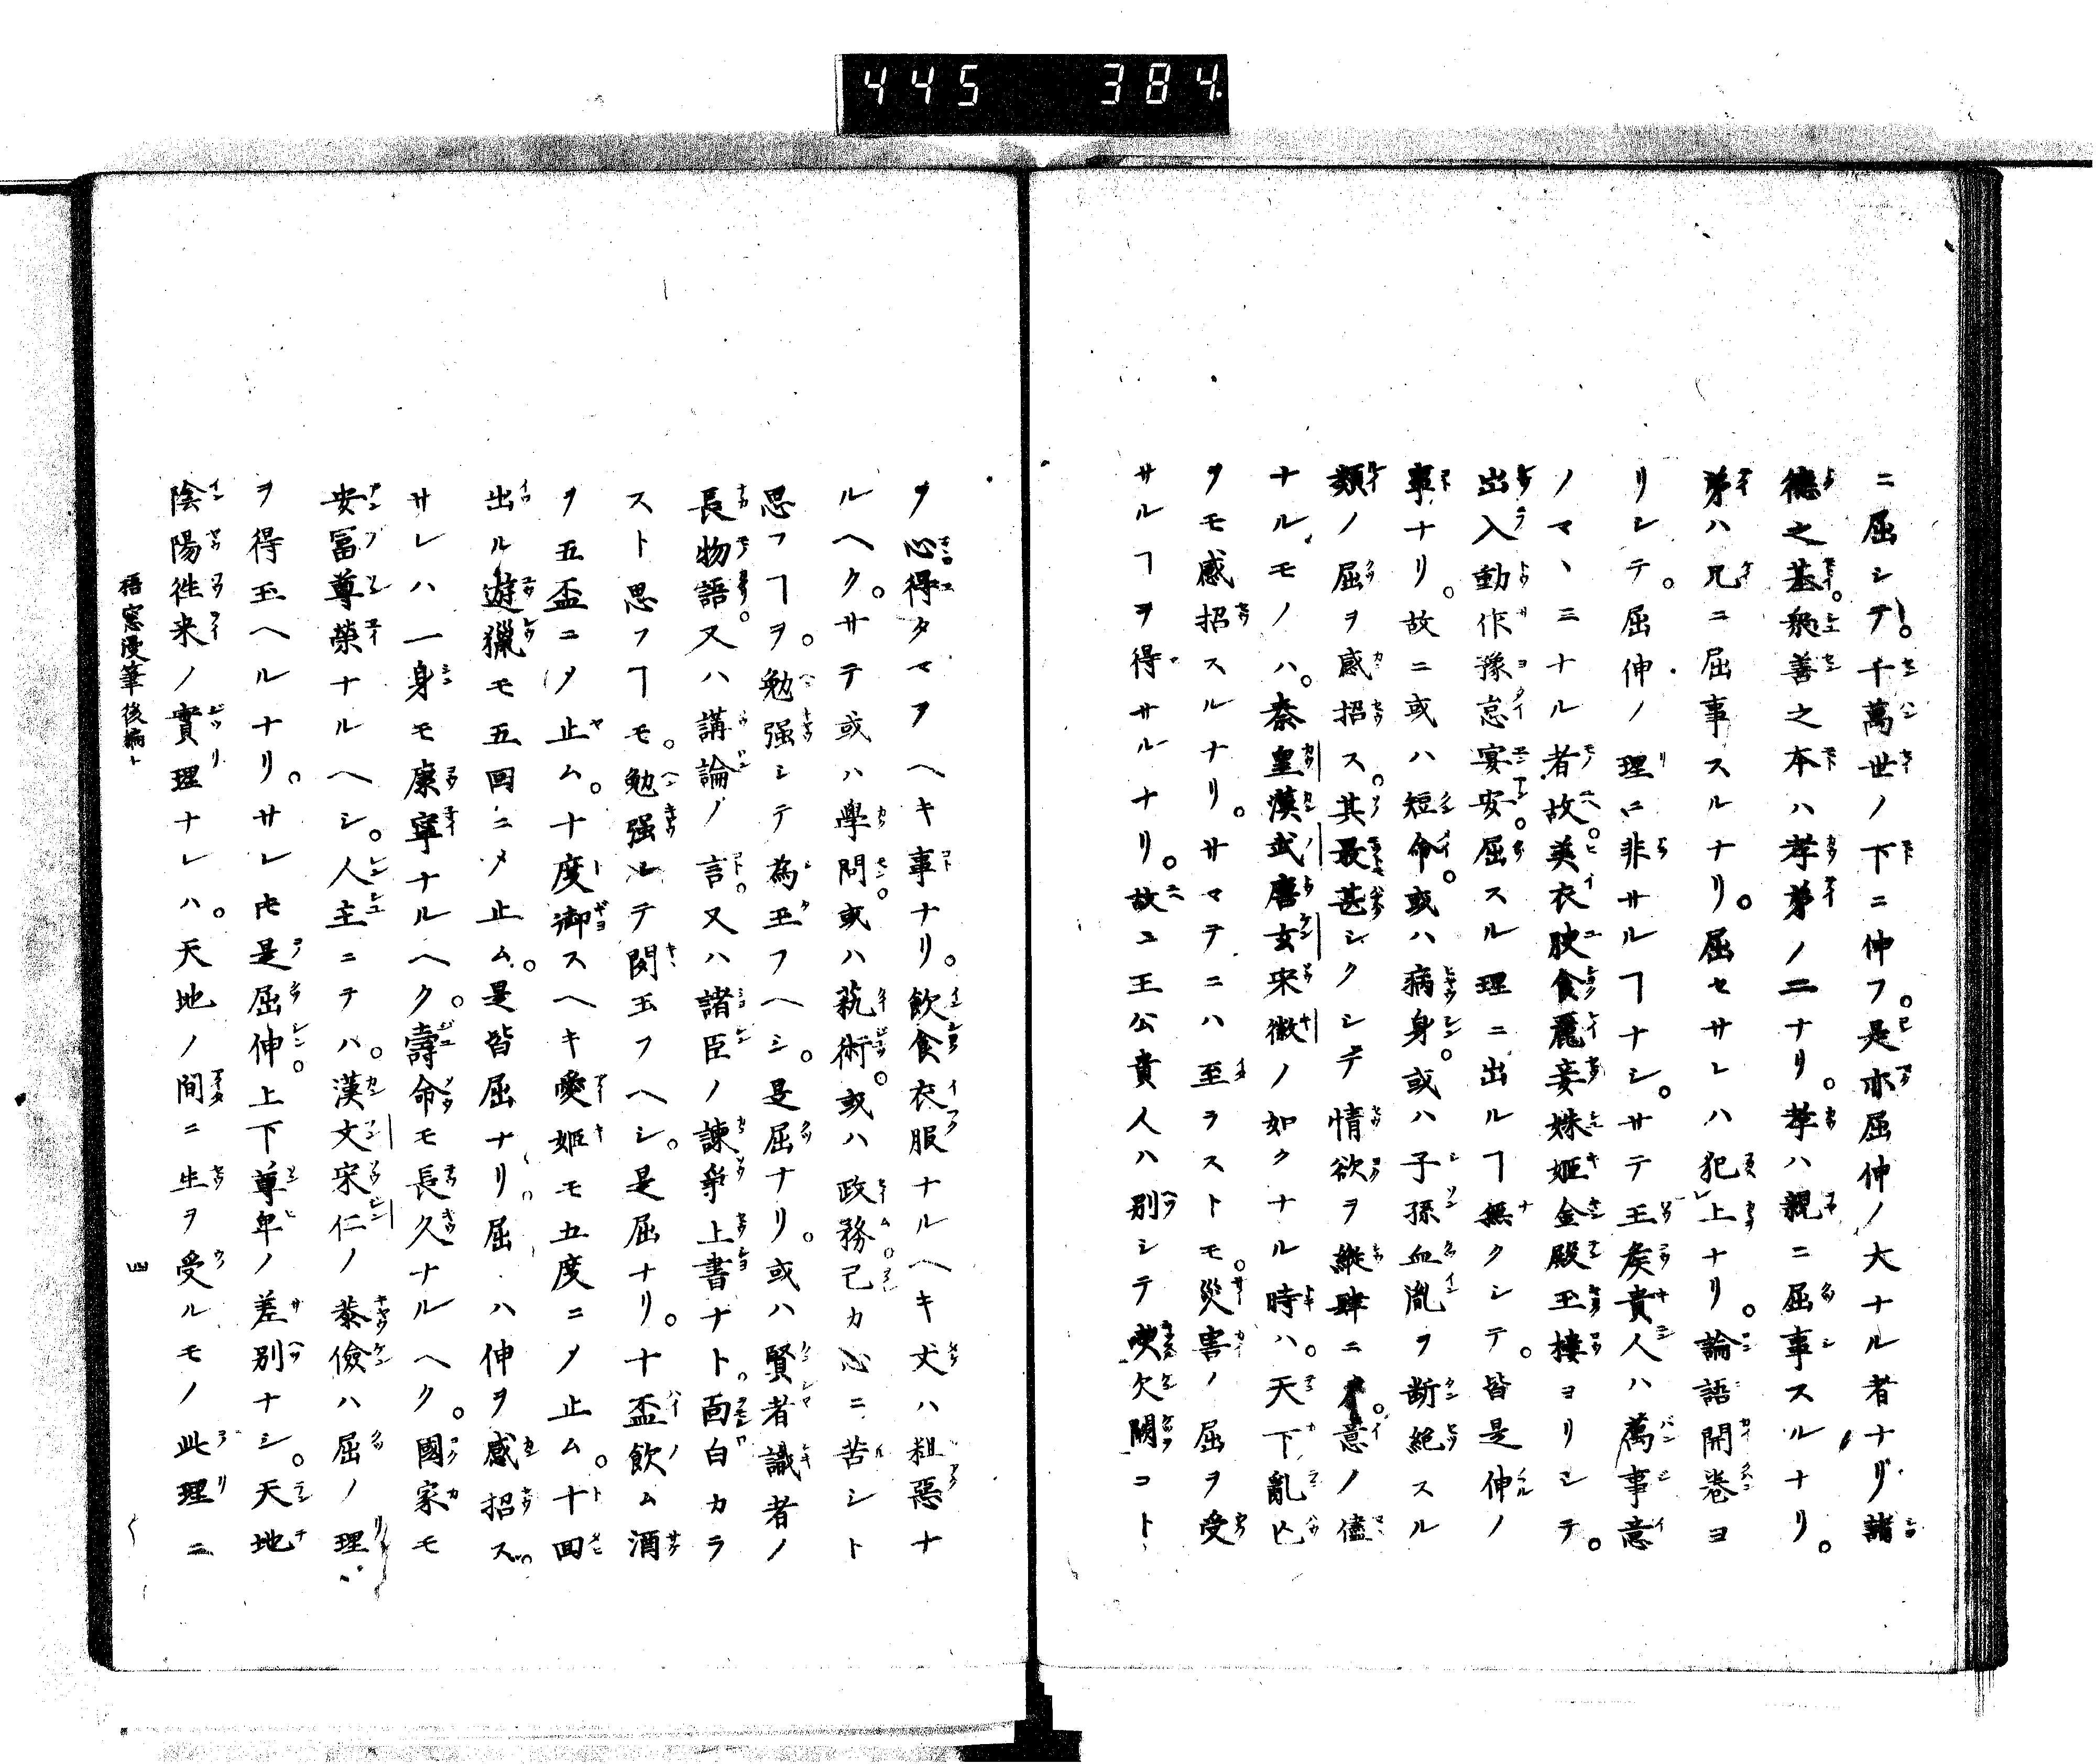 445 384
ニ屈シテ。千萬世ノ下ニ伸フ。是亦屈伸ノ大ナル者ナリ。諸
德之基。衆善之本ハ孝弟ノ二ナリ。孝ハ親ニ屈事スルナリ。
弟ハ兄ニ屈事スルナリ。屈セサレハ犯上ナリ。論語開卷ヨ
リシテ。屈伸ノ理ニ非サルヿナシ。サテ王矦貴人ハ萬事意
ノマヽニナル者故。美衣腴食麗妾姝姬金殿玉樓ヨリシテ。
出入動作豫怠宴安。屈スル理ニ出ルヿ無クシテ。皆是伸ノ
事ナリ。故ニ或ハ短命。或ハ病身。或ハ子孫血胤ヲ断絶スル
類ノ屈ヲ感招ス。其最甚シクシテ情欲ヲ縱肆ニ。意ノ儘
ナルモノハ。秦皇漢武唐玄宋徽ノ如クナル時ハ。天下亂亡
ヲモ感招スルナリ。サマテニハ至ラストモ。災害ノ屈ヲ受
サルヿヲ得サルナリ。故ニ王公貴人ハ別シテ喫欠闕コト
ヲ心得タマヲヘキ事ナリ。飲食衣服ナルヘキ丈ハ粗惡ナ
ルヘク。サテ或ハ學問。或ハ藝術。或ハ政務。己カ心ニ苦シト
思フヿヲ。勉强シテ為玉フヘシ。是屈ナリ。或ハ賢者識者ノ
長物語。又ハ講論ノ言。又ハ諸臣ノ諫爭上書ナト。面白カラ
スト思フヿモ。勉强ルテ聞玉フヘシ。是屈ナリ。十盃飲ム酒
ヲ五盃ニメ止ム。十度御スヘキ愛姬モ五度ニメ止ム。十回
出ル遊獵モ五回ニメ止ム。是皆屈ナリ。屈ハ伸ヲ感招ス。
サレハ一身モ康寧ナルヘク。壽命モ長久ナルヘク。國家モ
安富尊榮ナルヘシ。人主ニテハ。漢文宋仁ノ恭儉ハ屈ノ理
ヲ得玉ヘルナリ。サレ𪜈是屈伸。上下尊卑ノ差別ナシ。天地
陰陽徃来ノ實理ナレハ。天地ノ間ニ生ヲ受ルモノ此理ニ
梧窓漫筆後編上 四